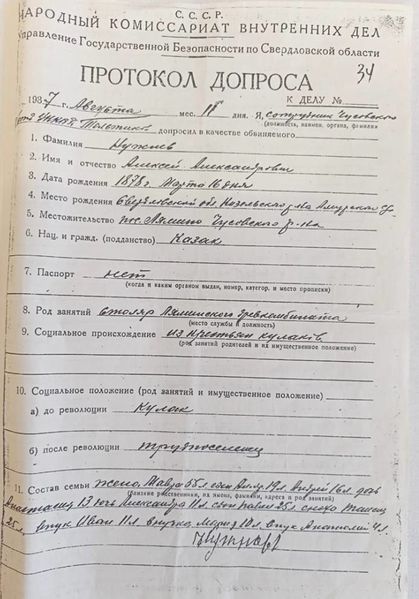 С. С. С. Р.
НАРОДНЫЙ КОМИССАРИАТ ВНУТРЕННИХ ДЕЛ
Управление Государственной Безопасности по Свердловской области
ПРОТОКОЛ ДОПРОСА
34
К ДЕЛУ №
1937 г. Августа мес. 11 дня. Я, сотрудник Чусовского
(должность, наимен. органа, фамилия
НКВД допросил в качестве обвиняемого
1. Фамилия
2. Имя и отчество Алексей Александрович
3. Дата рождения 1878 г. Марта 16 дня
4. Место рождения Свердловской обл.
5. Местожительство пос. Лямино Чусовского р-на
6. Нац. и гражд. (подданство) Казак
7. Паспорт нет
(когда и каким органом выдан, номер, категор. и место прописки)
8. Род занятий Столяр Ляминского
(место службы и должность)
9. Социальное происхождение из крестьян кулаков
(род занятий родителей и их имущественное положение)
10. Социальное положение (род занятий и имущественное положение)
а) до революции Кулак
б) после революции трудпоселенец
11. Состав семьи жена, 55 л. сын 19 л. Андрей 16 л. дочь
(близкие родственники, их имена, фамилии, адреса и род занятий)
Анастасия 13 дочь Александра 11 л. сын Павел 25 л. сноха
25 л. внук Иван 11 л. внучка Мария 10 л. внук Анатолий 4 л.